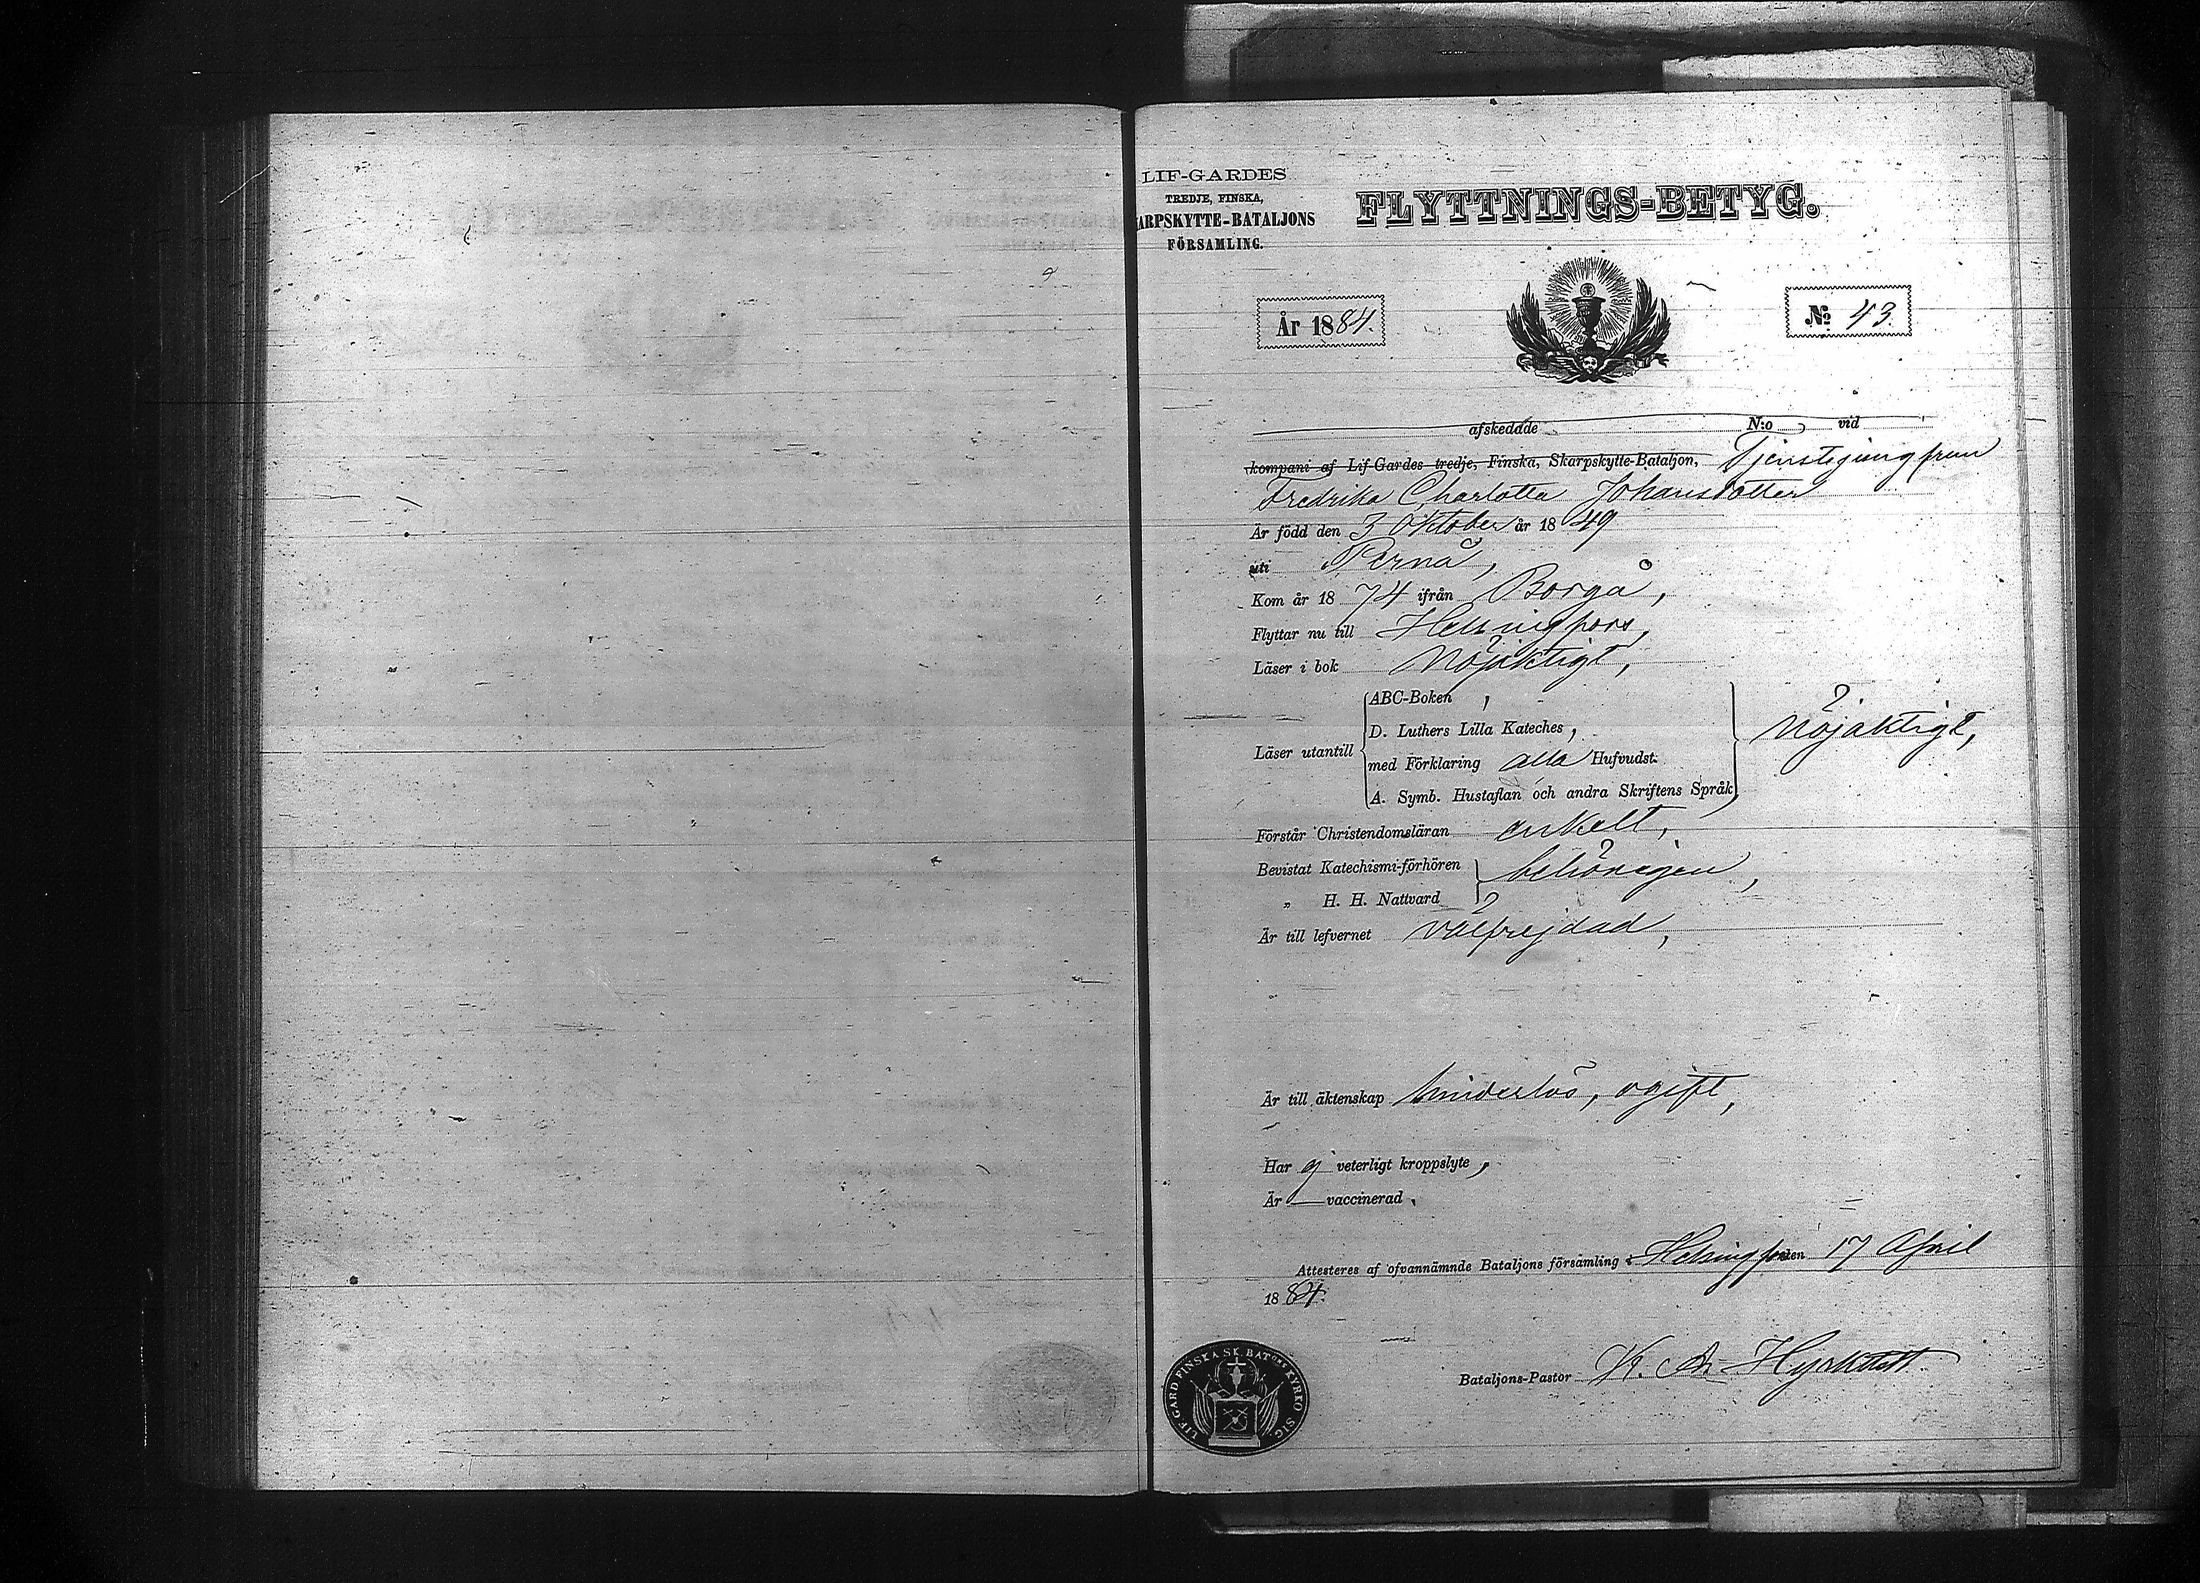 LIF-GARDES
TREDJE, FINSKA,
ARPSKYTTE-BATALJONS
FÖRSAMLING.
FLYTTNINGS-BETYG.
År 1884.
No 43.
afskedade N:o vid
kompani af Lif-Gardes tredje, Finska, Skarpskytte-Bataljon, Tjenstejungfrun
Fredrika Charlotta Johansdotter
Är född den 3 Oktober år 1849
uti Pernå,
Kom år 1874 ifrån Borgå,
Flyttar nu till Helsingfors,
Läser i bok Nöjaktigt,
Läser utantill
ABC-Boken,
D. Luthers Lilla Kateches,
med Förklaring alla Hufvudst.
A. Symb. Hustaflan och andra Skriftens Språk,
Nöjaktigt,
Förstår Christendomsläran enkelt,
Bevistat Katechismi-förhören
" H. H. Nattvard
behörigen,
Är till lefvernet välfrejdad,
Är till äktenskap hinderlös, ogift,
Har ej veterligt kroppslyte,
Är — vaccinerad.
Attesteras af ofvannämnde Bataljons församling i Helsingfors den 17 April
1884.
Bataljons-Pastor
LIF GARD FINSKA SK. BATONS KYRKO SIG